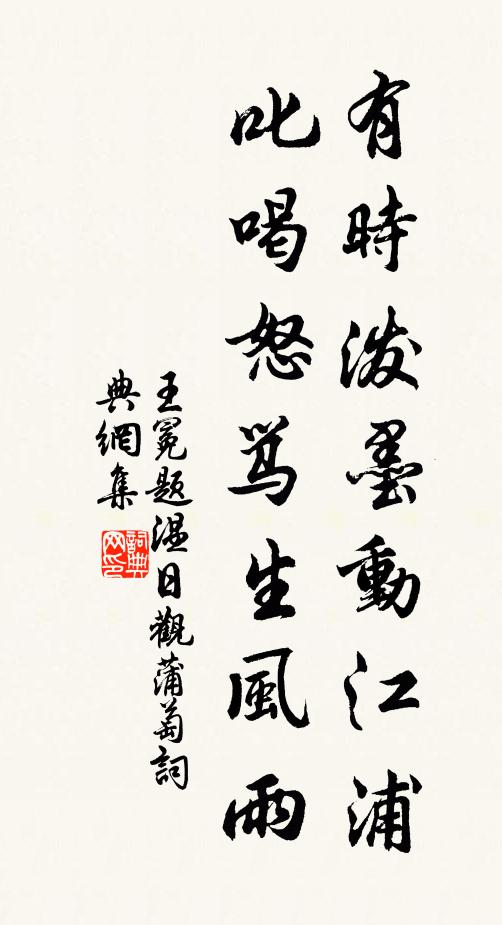 有時潑墨動江浦
叱喝怒骂生風雨
王冕題温日觀蒲萄詞
典網集
詞典
网印